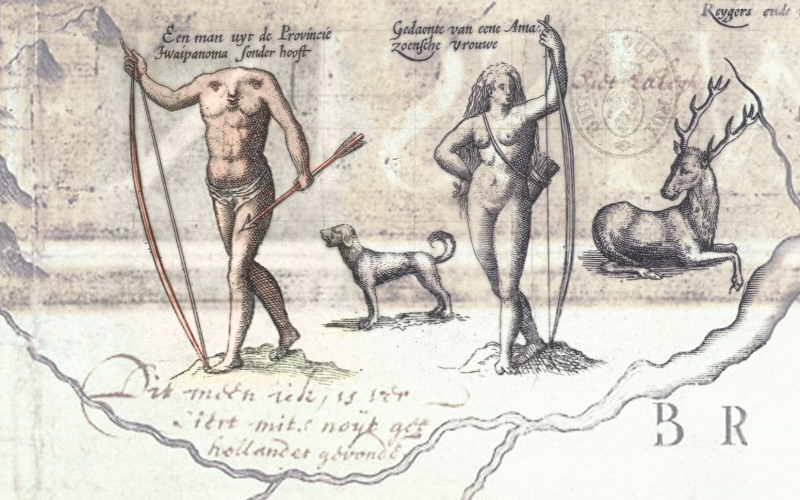 Een man uyt de Provincie
Iwaipanoma sonder hooft
Gedaente van eene Ama
zoensche vrouwe
Reygers ende
Dit meen ick, is ver
siert mits noÿt
hollander gevonde
B R